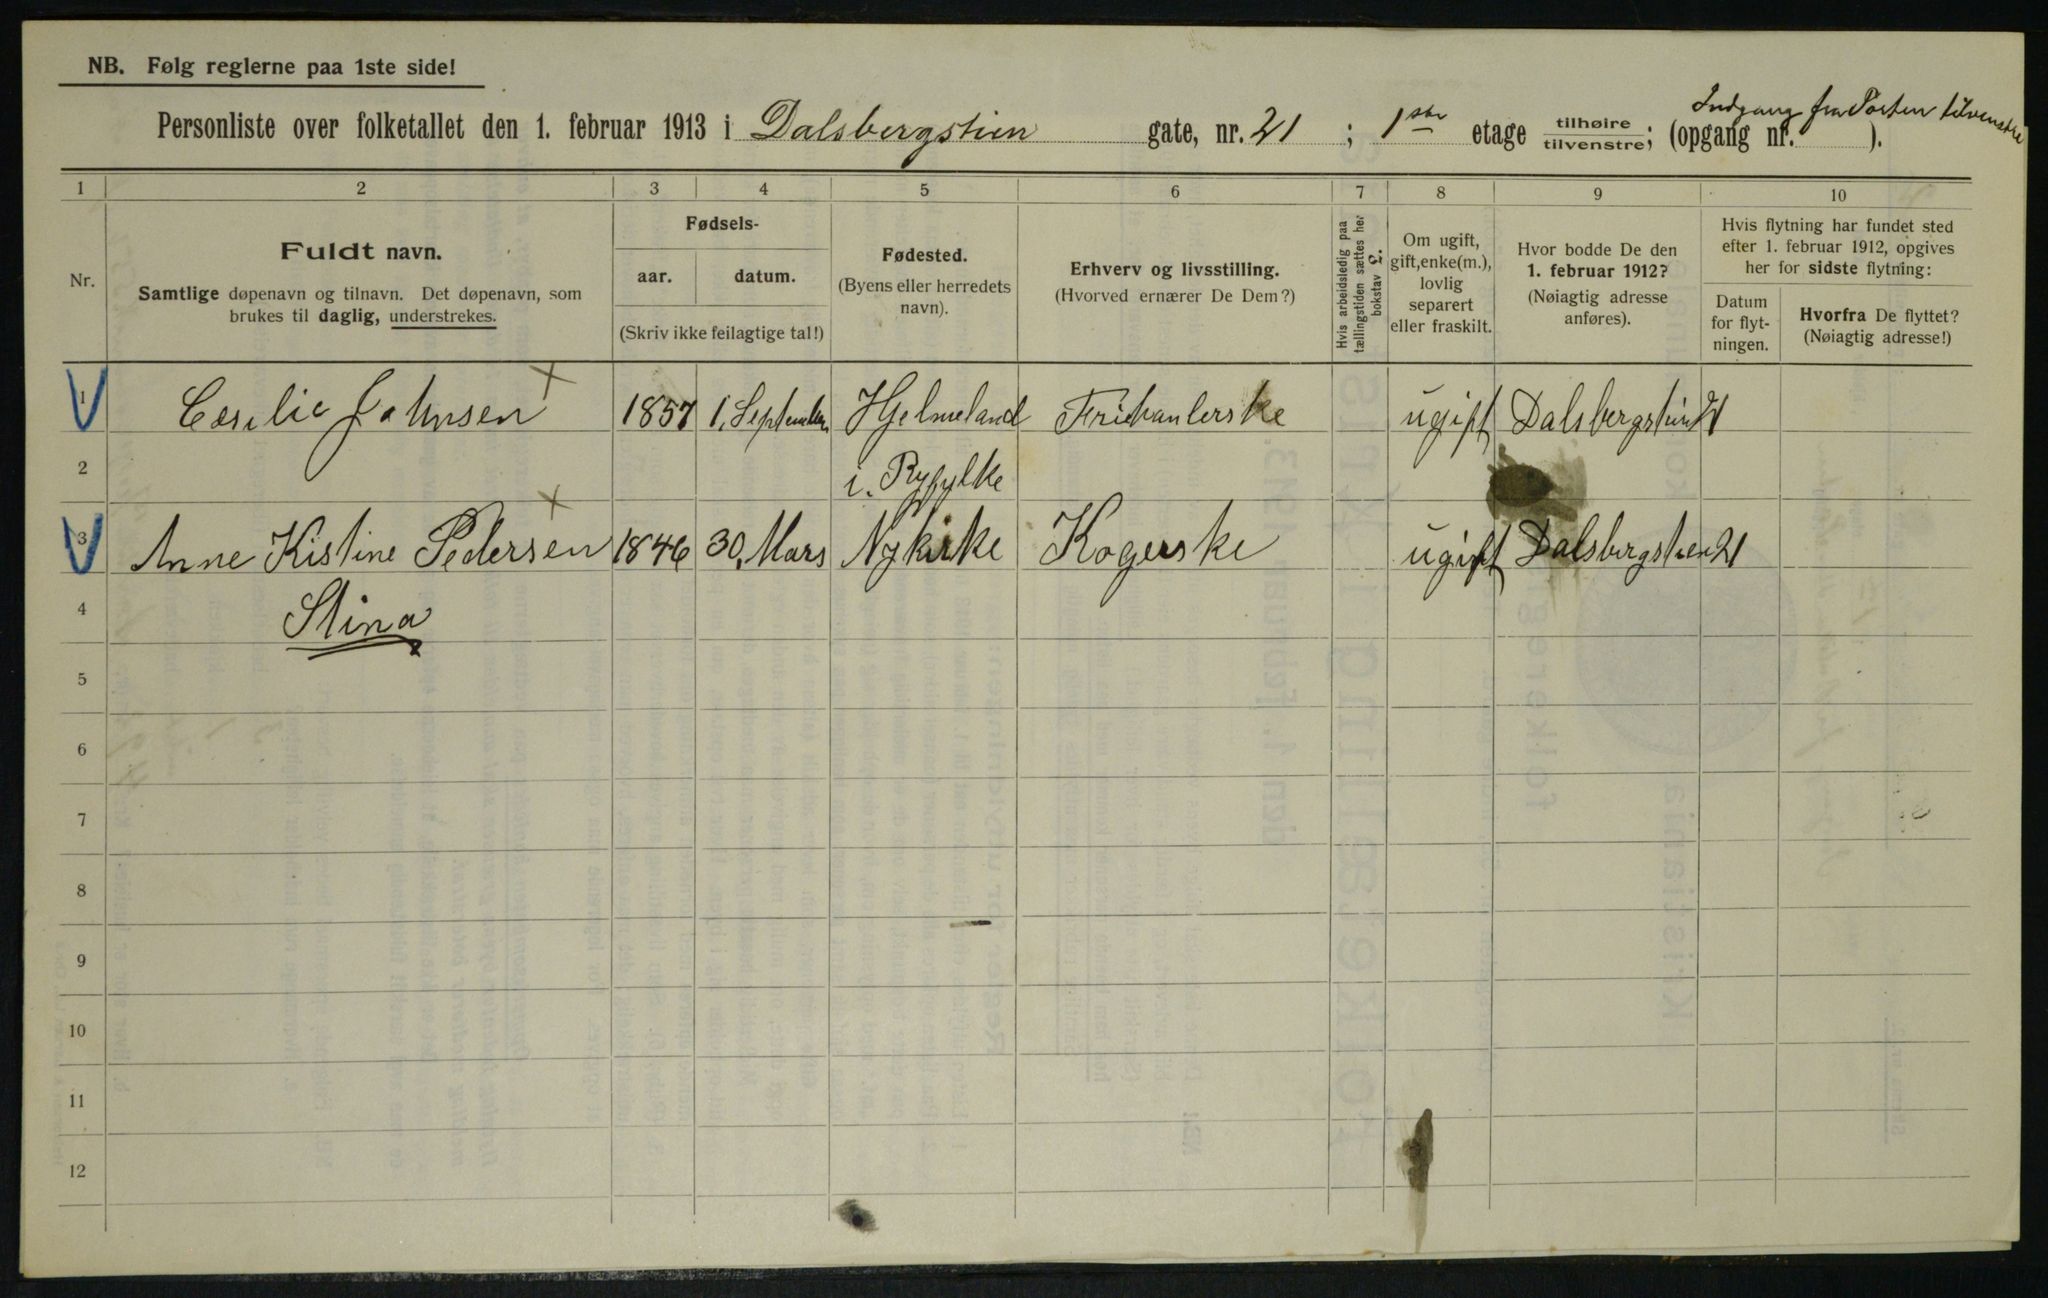 NB. Følg reglerne paa 1ste side!
Indgang fra Porten tilvenstre
Personliste over folketallet den 1. februar 1913 i Dalsbergstien gate, nr. 21 ; 1ste etage tilhøire tilvenstre; (opgang nr. ).
1 2 3 4 5 6 7 8 9 10
Nr.
Fuldt navn.
Samtlige døpenavn og tilnavn. Det døpenavn, som
brukes til daglig, understrekes.
Fødsels-
aar. datum.
(Skriv ikke feilagtige tal!)
Fødested.
(Byens eller herredets
navn).
Erhverv og livsstilling.
(Hvorved ernærer De Dem?)
Hvis arbeidsledig paa
tællingstiden sættes her
bokstav L.
Om ugift,
gift, enke(m.),
lovlig
separert
eller fraskilt.
Hvor bodde De den
1. februar 1912?
(Nøiagtig adresse
anføres).
Hvis flytning har fundet sted
efter 1. februar 1912, opgives
her for sidste flytning:
Datum
for flyt-
ningen.
Hvorfra De flyttet?
(Nøiagtig adresse!)
1 Cecilie Johnsen 1857 1. September Hjelmeland Frihanlerske ugift Dalsbergstien 21
2 i. Ryfylke
3 Anne Kistine Pedersen 1846 30. Mars Nykirke Kogerske ugift Dalsbergstien 21
4 Stina
5
6
7
8
9
10
11
12